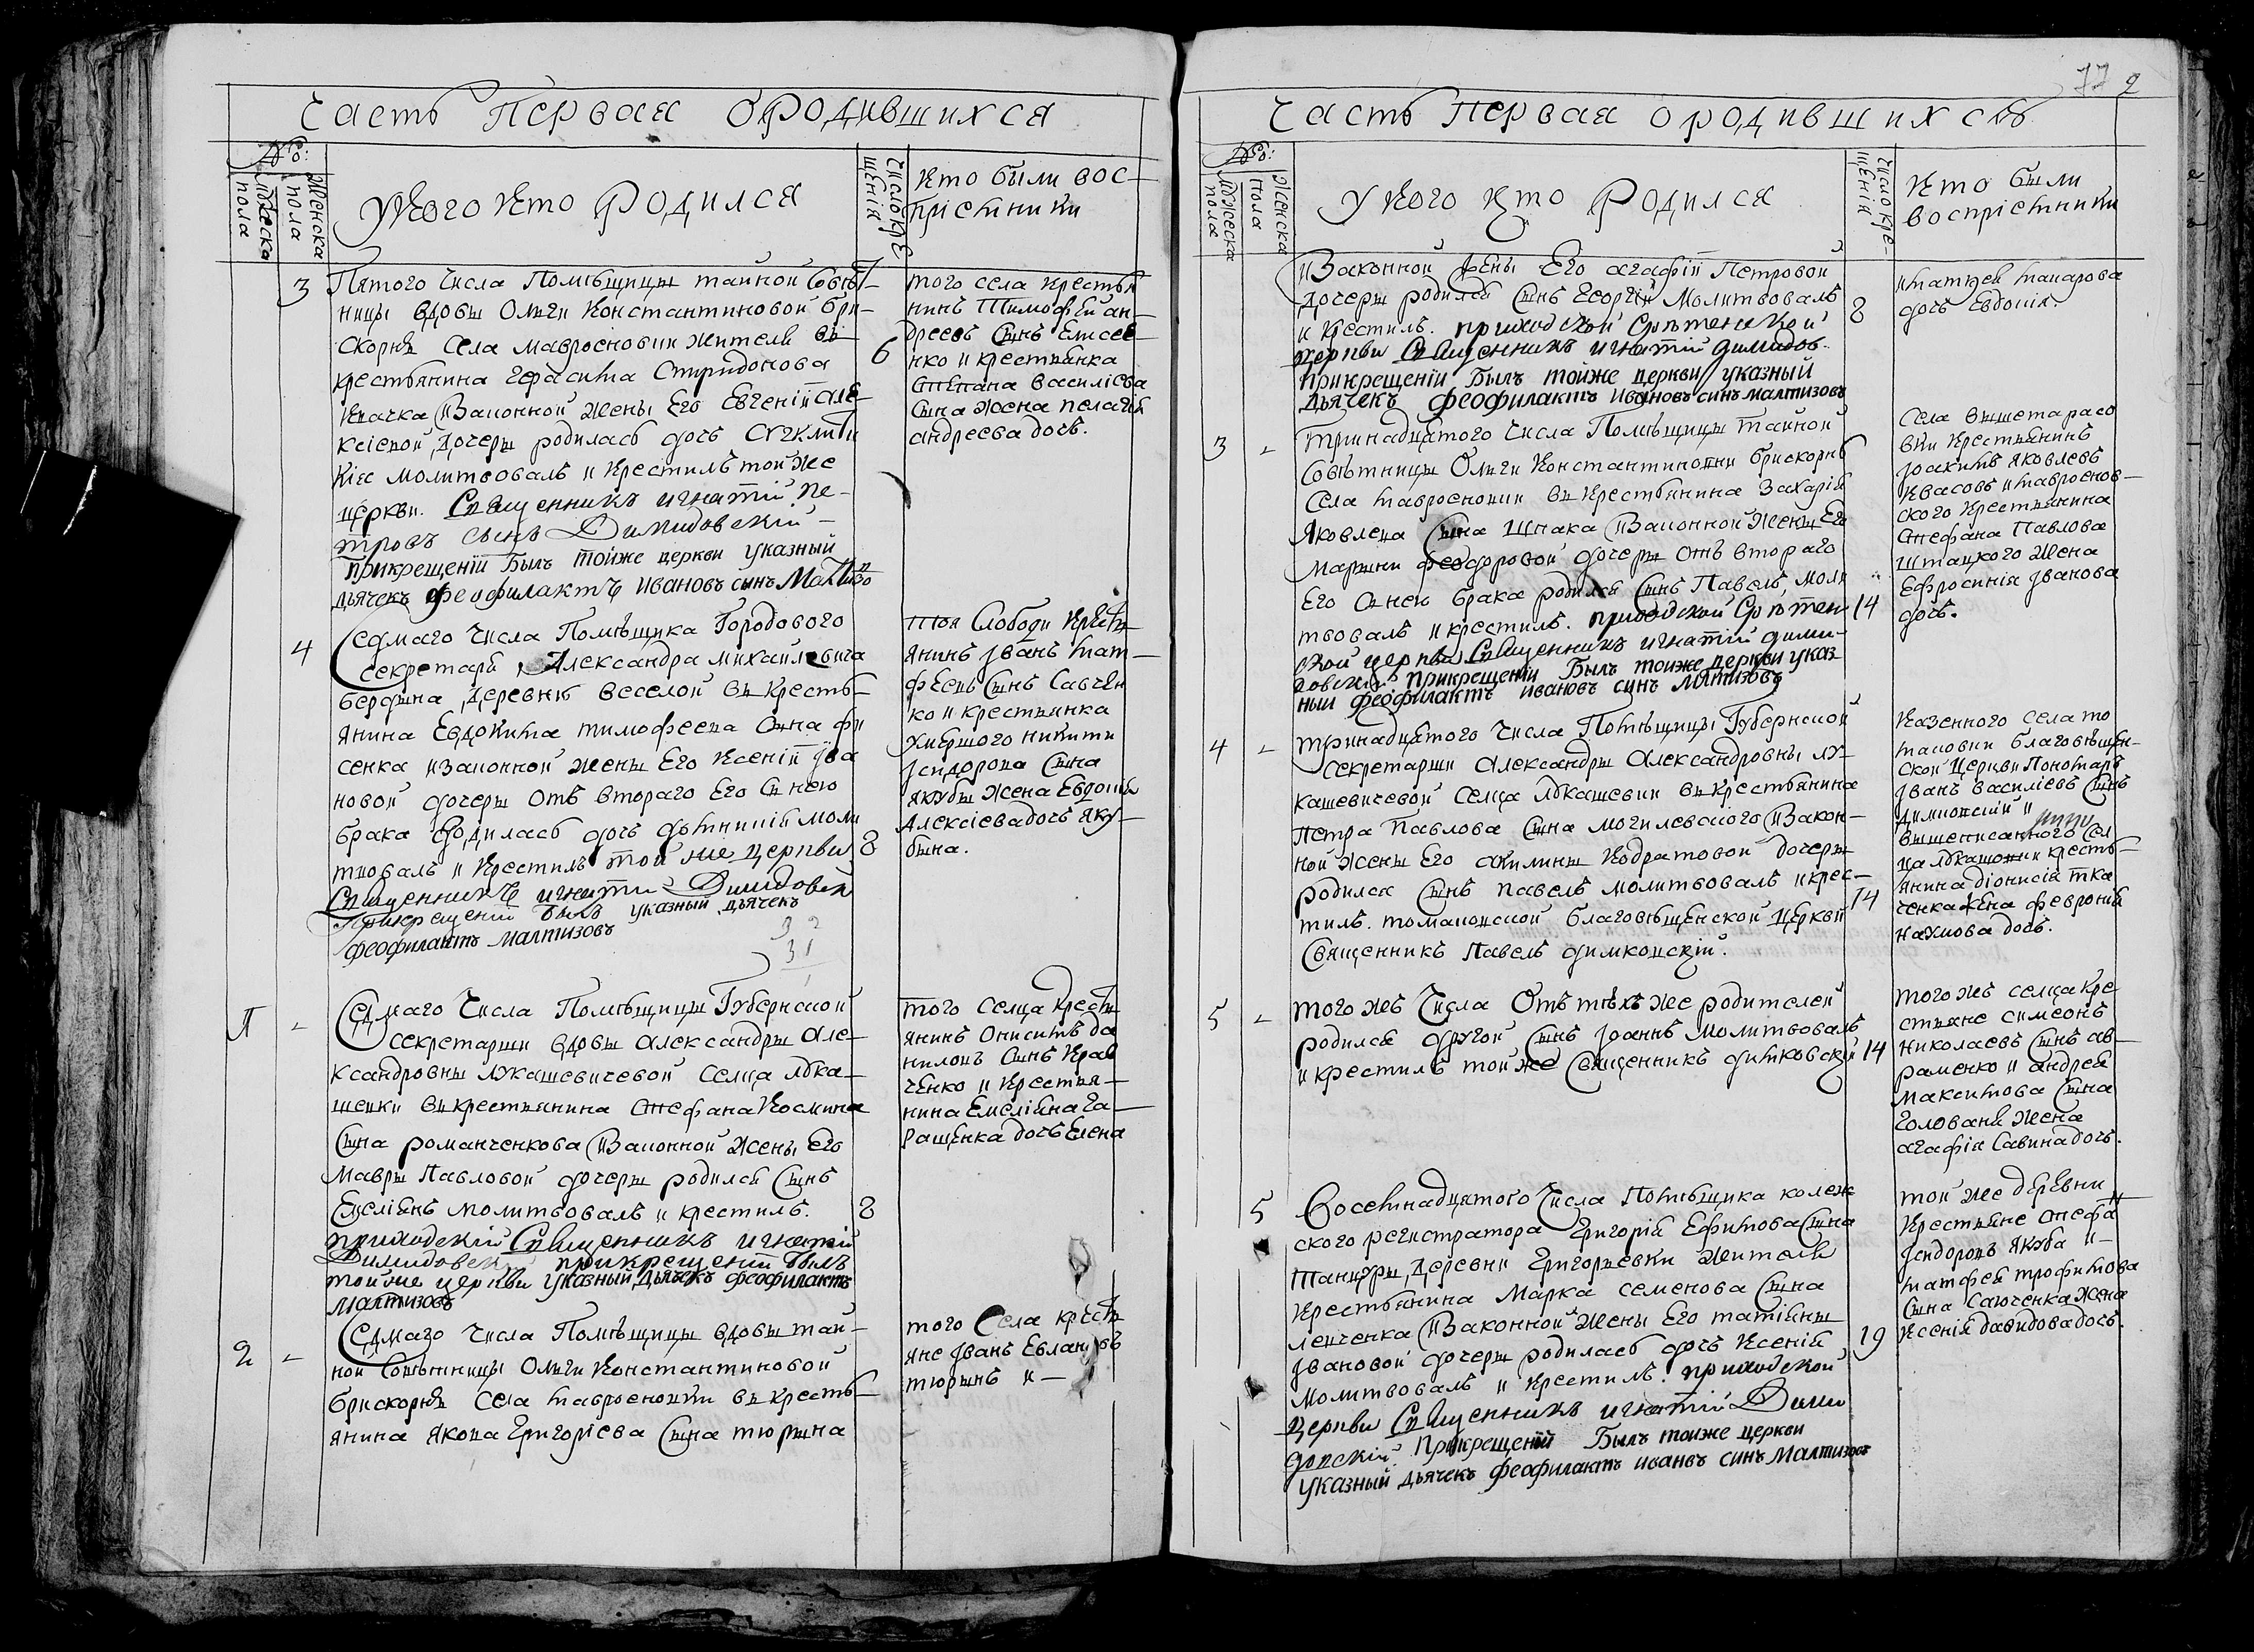 Часть первая ородившихся
№:
Мужеска пола
Женска пола
Укого кто родился
Число крещенія
Кто были вос-
пріемники
3
Пятого числа Помѣщицы тайной совѣт-
ницы вдовы Олги Константиновой бри-
скорнъ села мавроеновки жителя въ
крестьянина Герасима Спиридонова
Изаконной жены Его Евгеніи але-
ксіевой дочери родилась дочь
молитвовалъ и крестилъ той же
церкви. Священникъ игнатій пе-
тровъ сынъ Димидовскій
прикрещеніи Былъ тойже церкви указный
дьячекъ феофилактъ ивановъ синъ
6
того села крестья
нинъ Тимофей ан-
дреевъ сынъ елисее-
нко и крестьянка
степана василіева
сына жена пелагія
андреева дочь.
4
Седмаго числа Помѣщика Городового
секретаря Александра михайловича
деревнѣ веселой въ кресть-
янина Евдокима тимофеева сына фи
сенка изаконной жены Его Ксеніи іва
новой дочери отъ втораго Его снею
брака родилась дочь моли
твовалъ и крестилъ той же церкви
Священникъ игнатій Димидовскій
Прикрещеніи былъ указный дьячекъ
феофилактъ малтизовъ
8
тоя слободи крест
янинъ іванъ мат-
феевъ сынъ савчен
ко и крестьянка
умершого никити
Ісидорова сина
якубы жена Евдокія
Алексіева дочь яку-
бына.
32
31
1
-
Седмаго числа Помѣщицы Губернской
секретарши вдовы александры але-
ксандровны лукашевичевой селца лука-
шевки въ крестьянина стефана космина
сына романченкова изаконной жены его
мавры Павловой дочери родился сынъ
Емеліянъ молитвовалъ и крестилъ.
приходскій Священникъ игнатій
Димидовскій прикрещеніи былъ
тойже церкви указный дьячекъ феофилактъ
малтизовъ
8
того селца крест
янинъ Онисимъ да
ниловъ сынъ крав
ченко и крестья-
нина Емеліяна га-
ращенка дочь Елена
2
-
Седмаго числа Помѣщицы вдовы тай-
ной совѣтницы Олги Константиновой
брискорнъ села мавроеновки въ кресть-
янина якова Григоріева сына тюрина
того села крест
яне іванъ Евлановъ
тюринъ и -
77 2
Часть первая ородившихся
№:
Мужеска пола
Женска пола
Укого кто родился
Число крещенія
Кто были
воспріемники
изаконной жены Его агафіи Петровой
дочери родился сынъ Георгій молитвовалъ
и крестилъ. приходской Срѣтенской
церкви Священникъ игнатій димидов.
прикрещеніи Былъ тойже церкви указный
дьячекъ феофилактъ ивановъ синъ малтизовъ
8
матфей макарова
дочь Евдокія.
3
-
тринадцятого числа Помѣщицы тайной
совѣтницы Олги Константиновни брискорнъ
села мавроеновки въ крестьянина захарія
Яковлева сына шпака изаконной жены Его
марины феодоровой дочери отъ втораго
Его снею брака родился сынъ Павелъ, моли
твовалъ и крестилъ. приходской Срѣтен
ской церкви Священникъ игнатій дими-
довскій прикрещеніи Былъ тойже церкви указ
ный феофилактъ ивановъ синъ малтизовъ
14
села вышетарасо
вки крестьянинъ
іоакимъ яковлевъ
квасовъ и мавроенов-
ского крестьянина
стефана Павлова
шпацкого жена
Ефросинія іванова
дочь.
4
-
тринадцятого числа Помѣщицы Губернской
секретарши александры александровны лу-
кашевичевой селца лукашевки въ крестьянина
петра Павлова сына могилевского изакон-
ной жены Его акилины кодратовой дочери
родился сынъ павелъ молитвовалъ и крес-
тилъ. томаковской благовѣщенской церкви
Священникъ Павелъ димковскій.
14
Казенного села то
маковки благовѣщен-
ской церкви Пономарь
іванъ василіевъ сынъ
димковскій и
вышеписанного сел
ца лукашовки кресть-
янина діонисія тка
ченка жена февронія
наумова дочь.
5
-
того жъ числа отъ тѣхъ же родителей
родился другой сынъ іоаннъ молитвовалъ
и крестилъ той же Священникъ димковскій
14
того жъ селца кре
стьяне симеонъ
николаевъ сынъ ав-
раменко и андрея
максимова сына
голованя жена
агафія савина дочь.
5
Восемнадцятого числа Помѣщика колеж
ского регистратора Григорія Ефимова сына
Танцуры, деревни Григорьевки жителя
крестьянина марка семенова сына
левченка изаконной жены Его татіяны
івановой дочери родилась дочь ксенія
молитвовалъ и крестилъ. приходской
церкви Священникъ игнатій Дими
довскій. прикрещеніи Былъ тойже церкви
указный дьячекъ феофилактъ иванвъ синъ малтизовъ
19
той же деревни
крестьяне стефа
ісидоровъ якуба и -
матфея трофимова
сына савченка жена
ксенія давидова дочь.